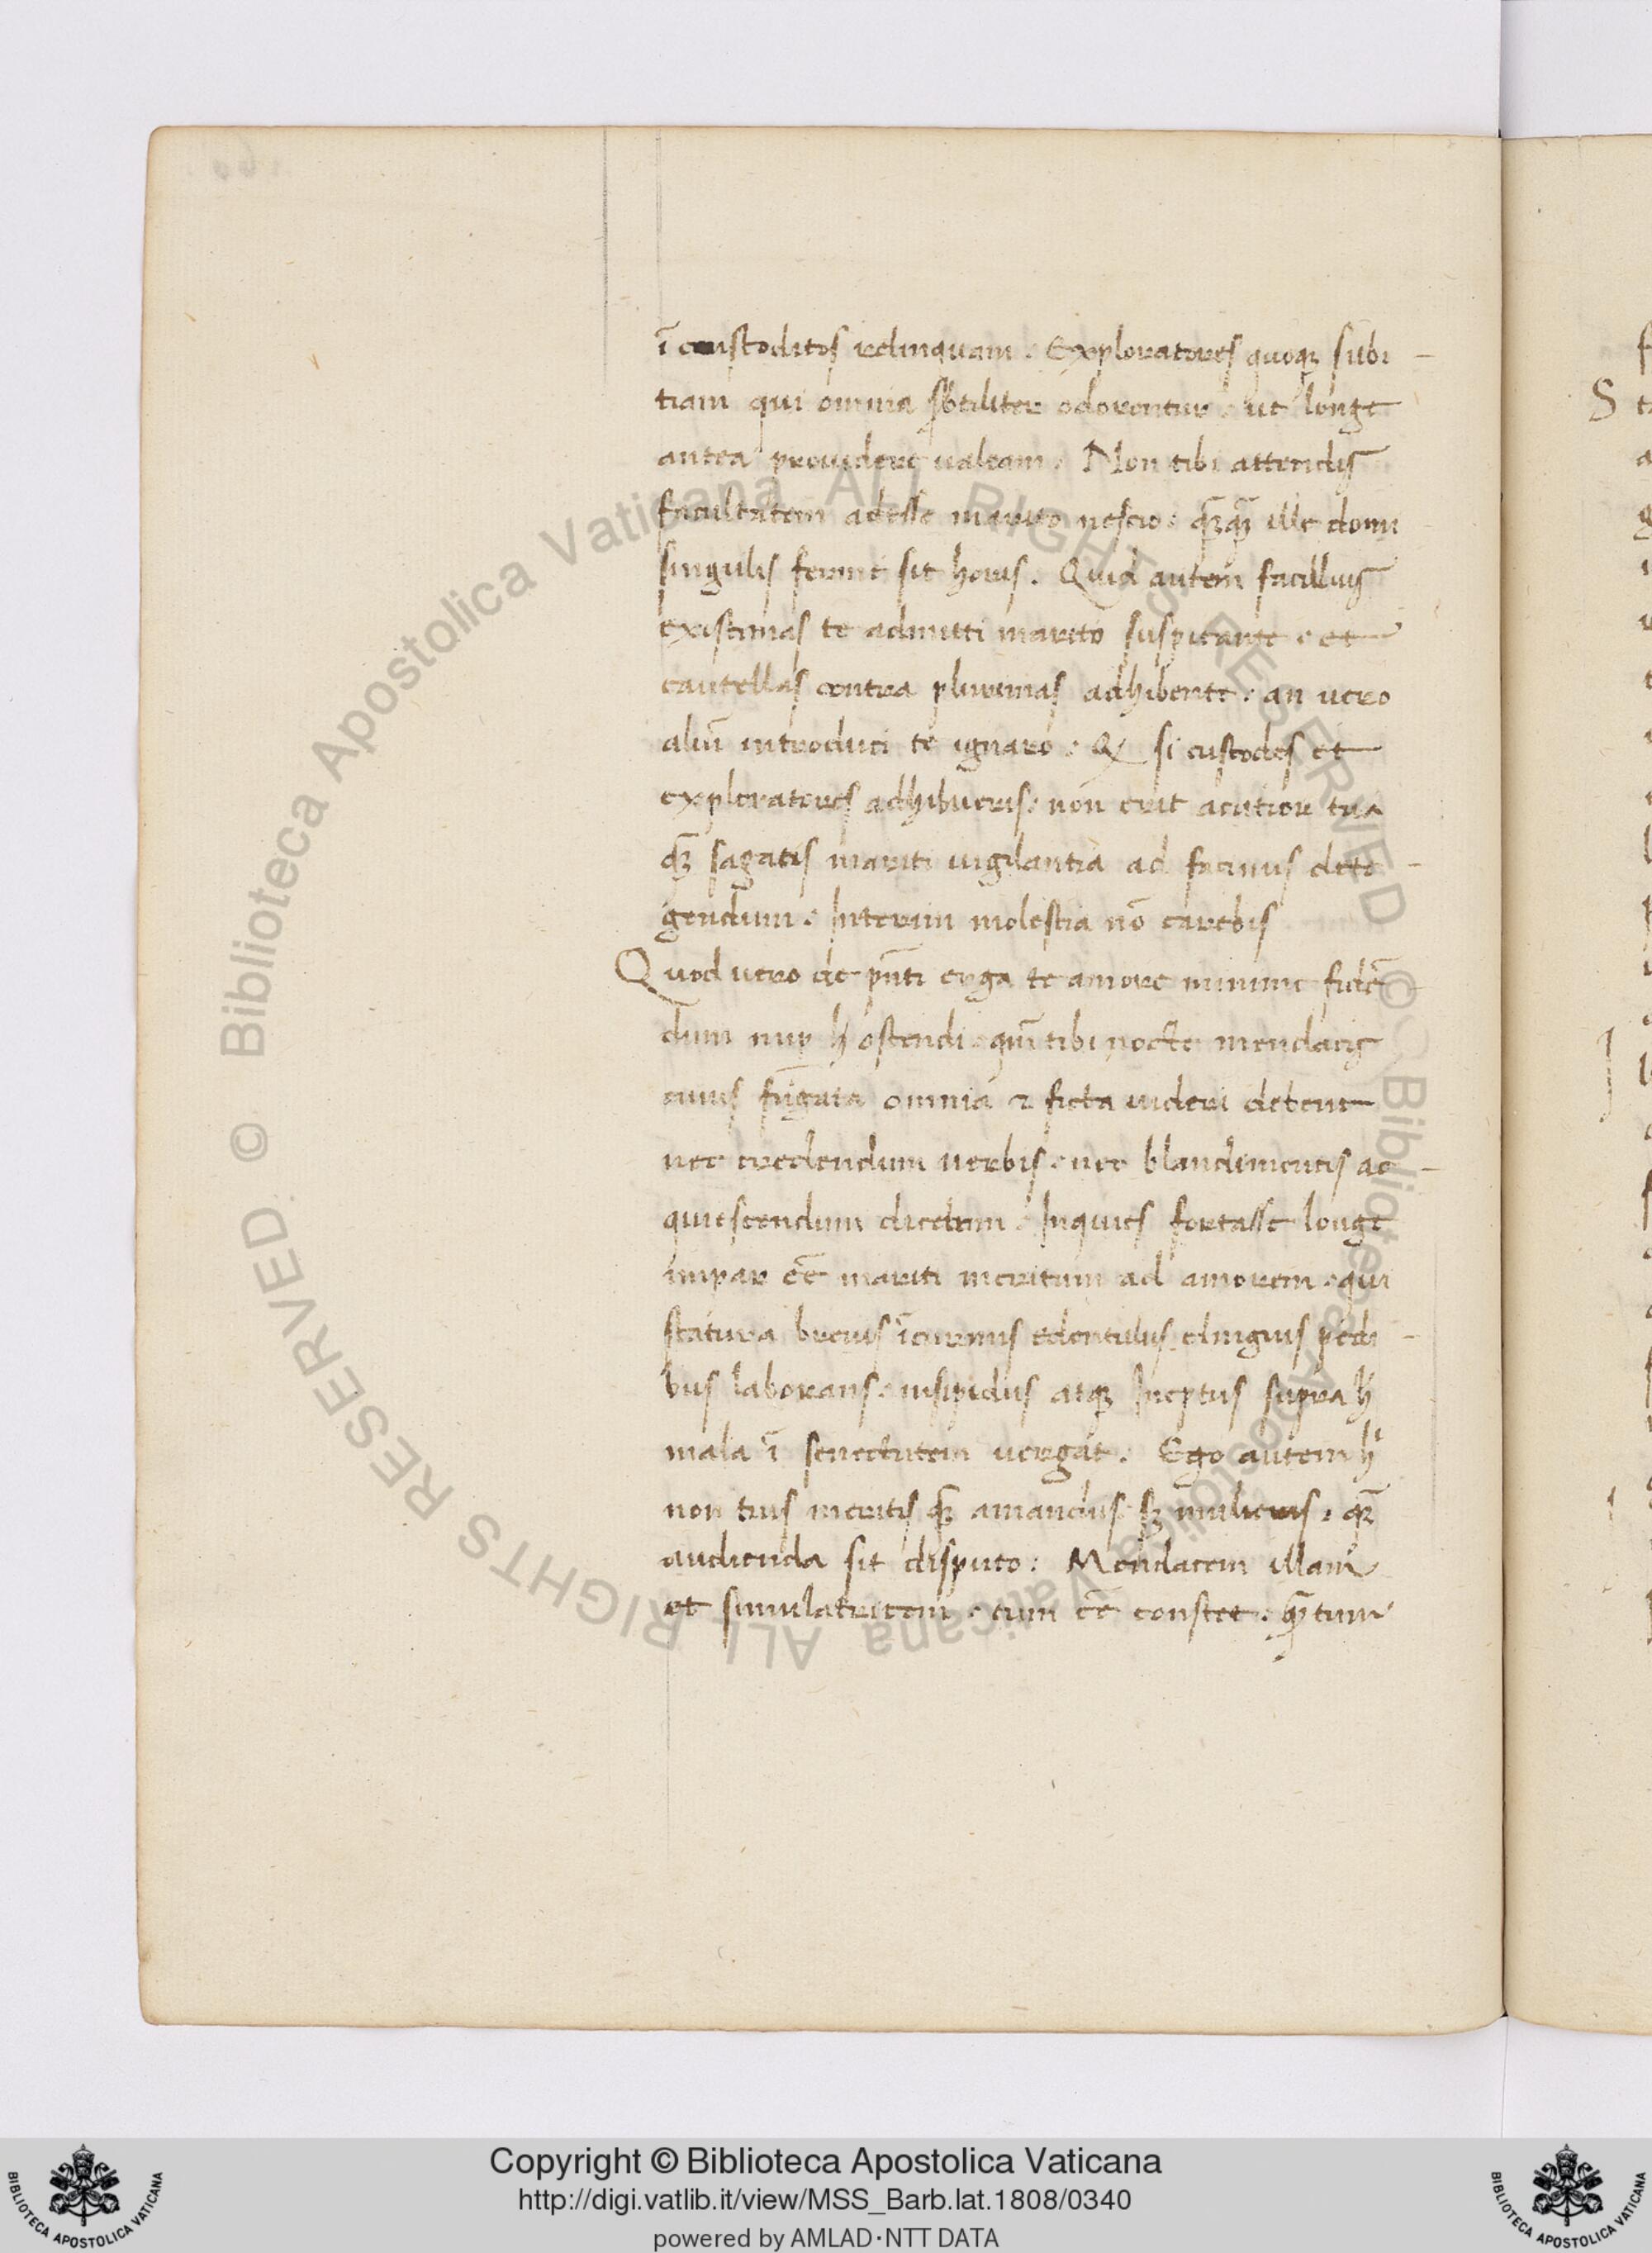 ī custoditos relinquam. Exploratores quoqꝫ subi-
tiam qui omnia sbtiliter odorentur. ut longe
antea prouidere ualeam. Non tibi attendis
facultatem adesse marito nescio: ille domi
singulis ferme sit horis. Quid autem facilluis
existimas te admitti marito suspicante. et
cautellas contra plurimas adhibente: an uero
aliū introduci te ignaro. si custodes et
exploratores adhibueris: non erit acutior tua
qꝫ̄ sagatis mariti uigilantia ad facinus dete-
gendum. Interim molestia nō carebis
Quod uero de pn̄ti erga te amore minime fidē-
dum nup h ostendi. quī tibi nocte mendacis
cuius omnia ꝛ ficta uideri debent
nec credendum uerbis. nec blandimentis ac-
quiescendum dicebam. Inquies fortasse longe
impar eē mariti meritum ad amorem. qui
statura breuis īcuruus edentulus elinguis pedi-
bus laborans. insipidus atqꝫ Ineptus supra h
mala ī senectutem uergat. Ego autem h
non tuis meritis amandus. sꝫ mulieris. qꝫ̄
audienda sit disputo: Mendacem illam
et simulatricem. cum eē constet. qꝫ̄tum
Copyright © Biblioteca Apostolica Vaticana
http://digi.vatlib.it/view/MSS_Barb.lat.1808/0340
powered by AMLAD·NTT DATA
BIBLIOTECA APOSTOLICA VATICANA
BIBLIOTECA APOSTOLICA VATICANA
© Biblioteca Apostolica Vaticana ALL RIGHTS RESERVED
© Biblioteca Apostolica Vaticana ALL RIGHTS RESERVED